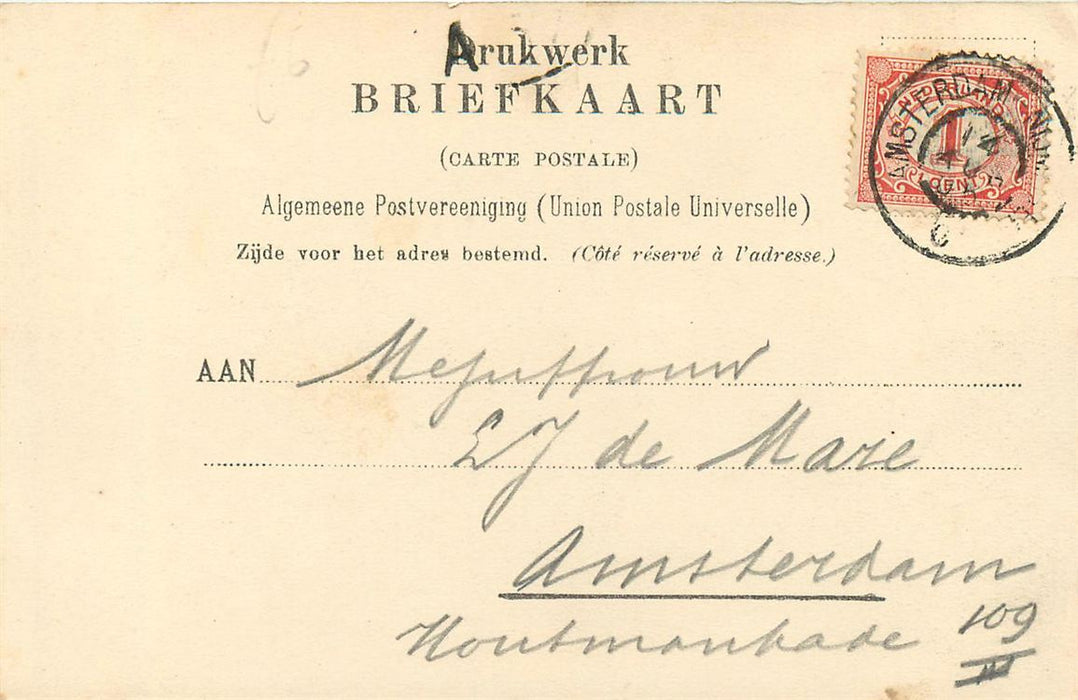 A
Drukwerk
BRIEFKAART
(CARTE POSTALE)
Algemeene Postvereeniging (Union Postale Universelle)
Zijde voor het adres bestemd. (Côté réservé à l'adresse.)
NEDERLAND
1
CENT
AMSTERDAM
AAN Mejuffrouw
E J de Mare
Amsterdam
Houtmankade 109
III